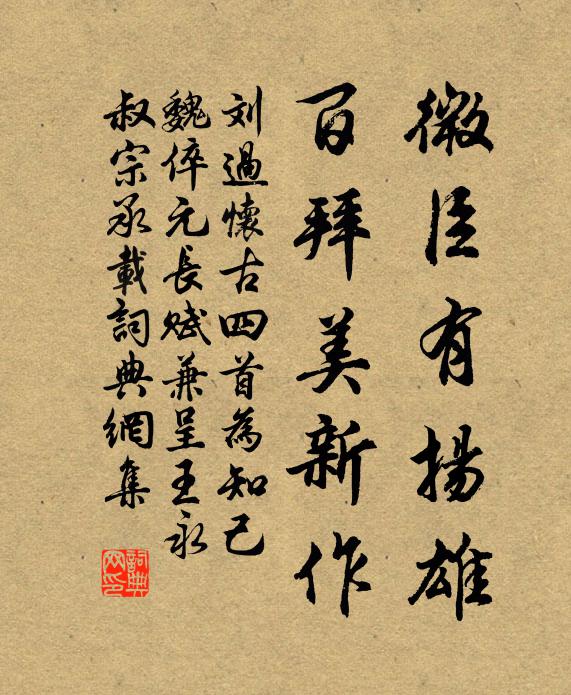 微臣有揚雄
百拜美新作
刘過懷古四首為知己
魏倅元長賦兼呈王永
叔宗丞載詞典網集
詞典网印